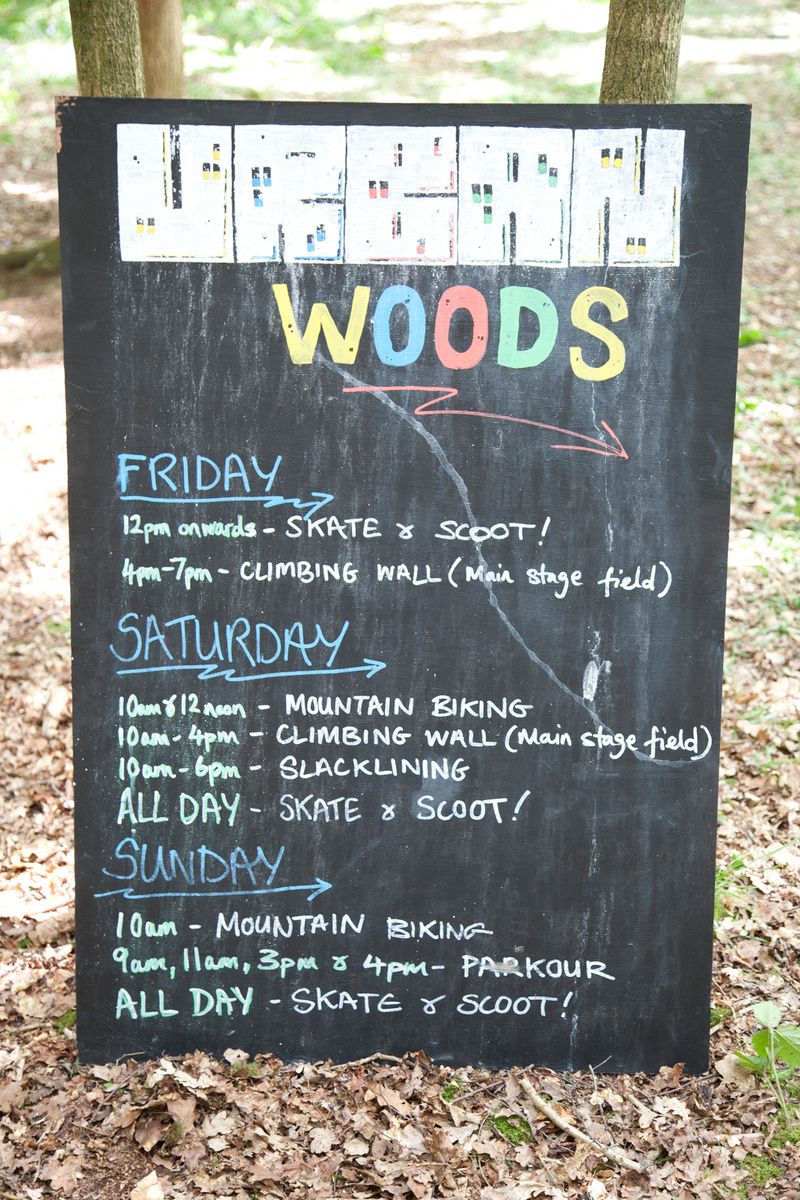 URBAN
WOODS
FRIDAY
12pm onwards - SKATE & SCOOT!
4pm-7pm - CLIMBING WALL (Main stage field)
SATURDAY
10am & 12 noon - MOUNTAIN BIKING
10am-4pm - CLIMBING WALL (Main stage field)
10am-6pm - SLACKLINING
ALL DAY - SKATE & SCOOT!
SUNDAY
10am - MOUNTAIN BIKING
9am, 11am, 3pm & 4pm - PARKOUR
ALL DAY - SKATE & SCOOT!